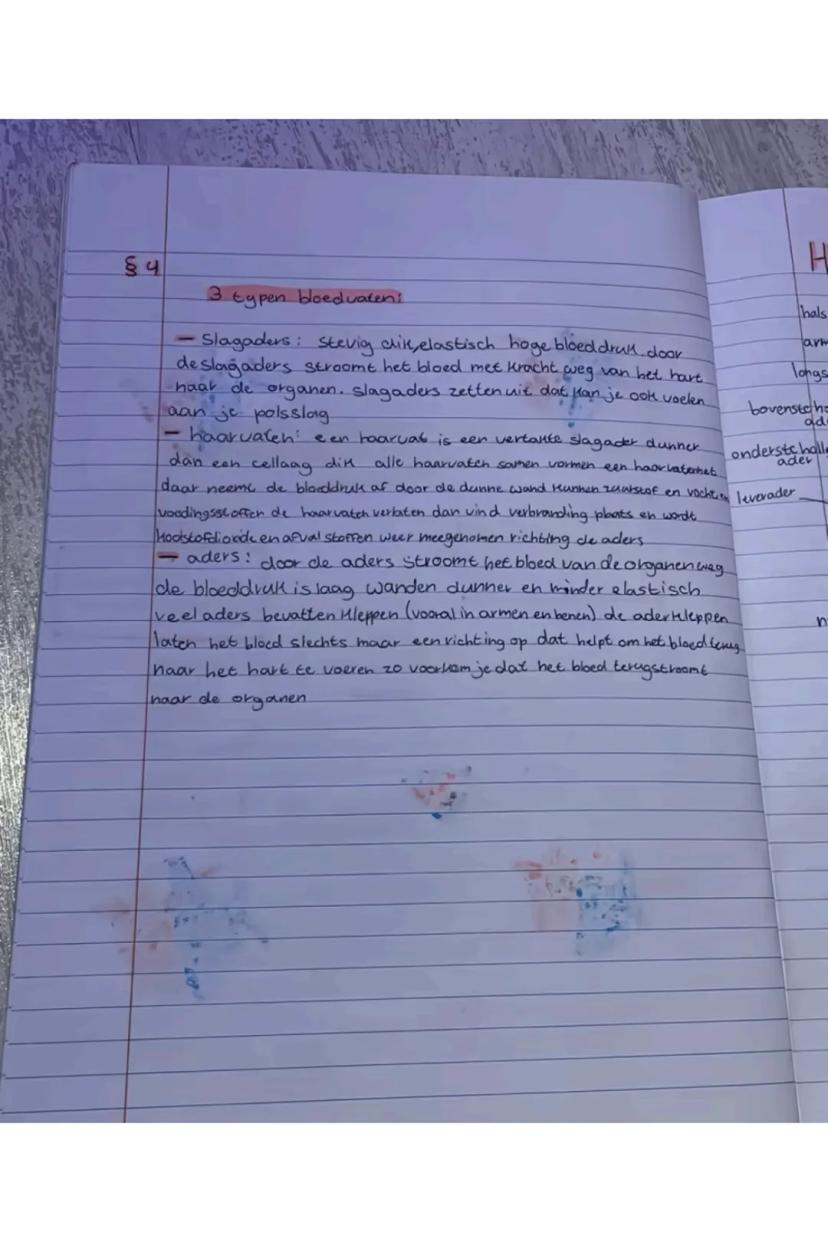 § 4
3 typen bloedvaten:
– Slagaders: stevig dik, elastisch hoge bloeddruk door
de slagaders stroomt het bloed met kracht weg van het hart
naar de organen. slagaders zetten uit dat kan je ook voelen
aan je polsslag
– haarvaten: een haarvat is een vertakte slagader dunner
dan een cellaag dik alle haarvaten samen vormen een haarvatennet
daar neemt de bloeddruk af door de dunne wand kunnen zuurstof en vocht en
voedingsstoffen de haarvaten verlaten dan vind verbranding plaats en wordt
koolstofdioxide en afval stoffen weer meegenomen richting de aders
– aders: door de aders stroomt het bloed van de organen weg
de bloeddruk is laag wanden dunner en minder elastisch
veel aders bevatten kleppen (vooral in armen en benen) de aderkleppen
laten het bloed slechts maar een richting op dat helpt om het bloed terug
naar het hart te voeren zo voorkom je dat het bloed terugstroomt
naar de organen
H
hals
arm
longs
bovenste ho
ad
onderste holle
ader
leverader
n